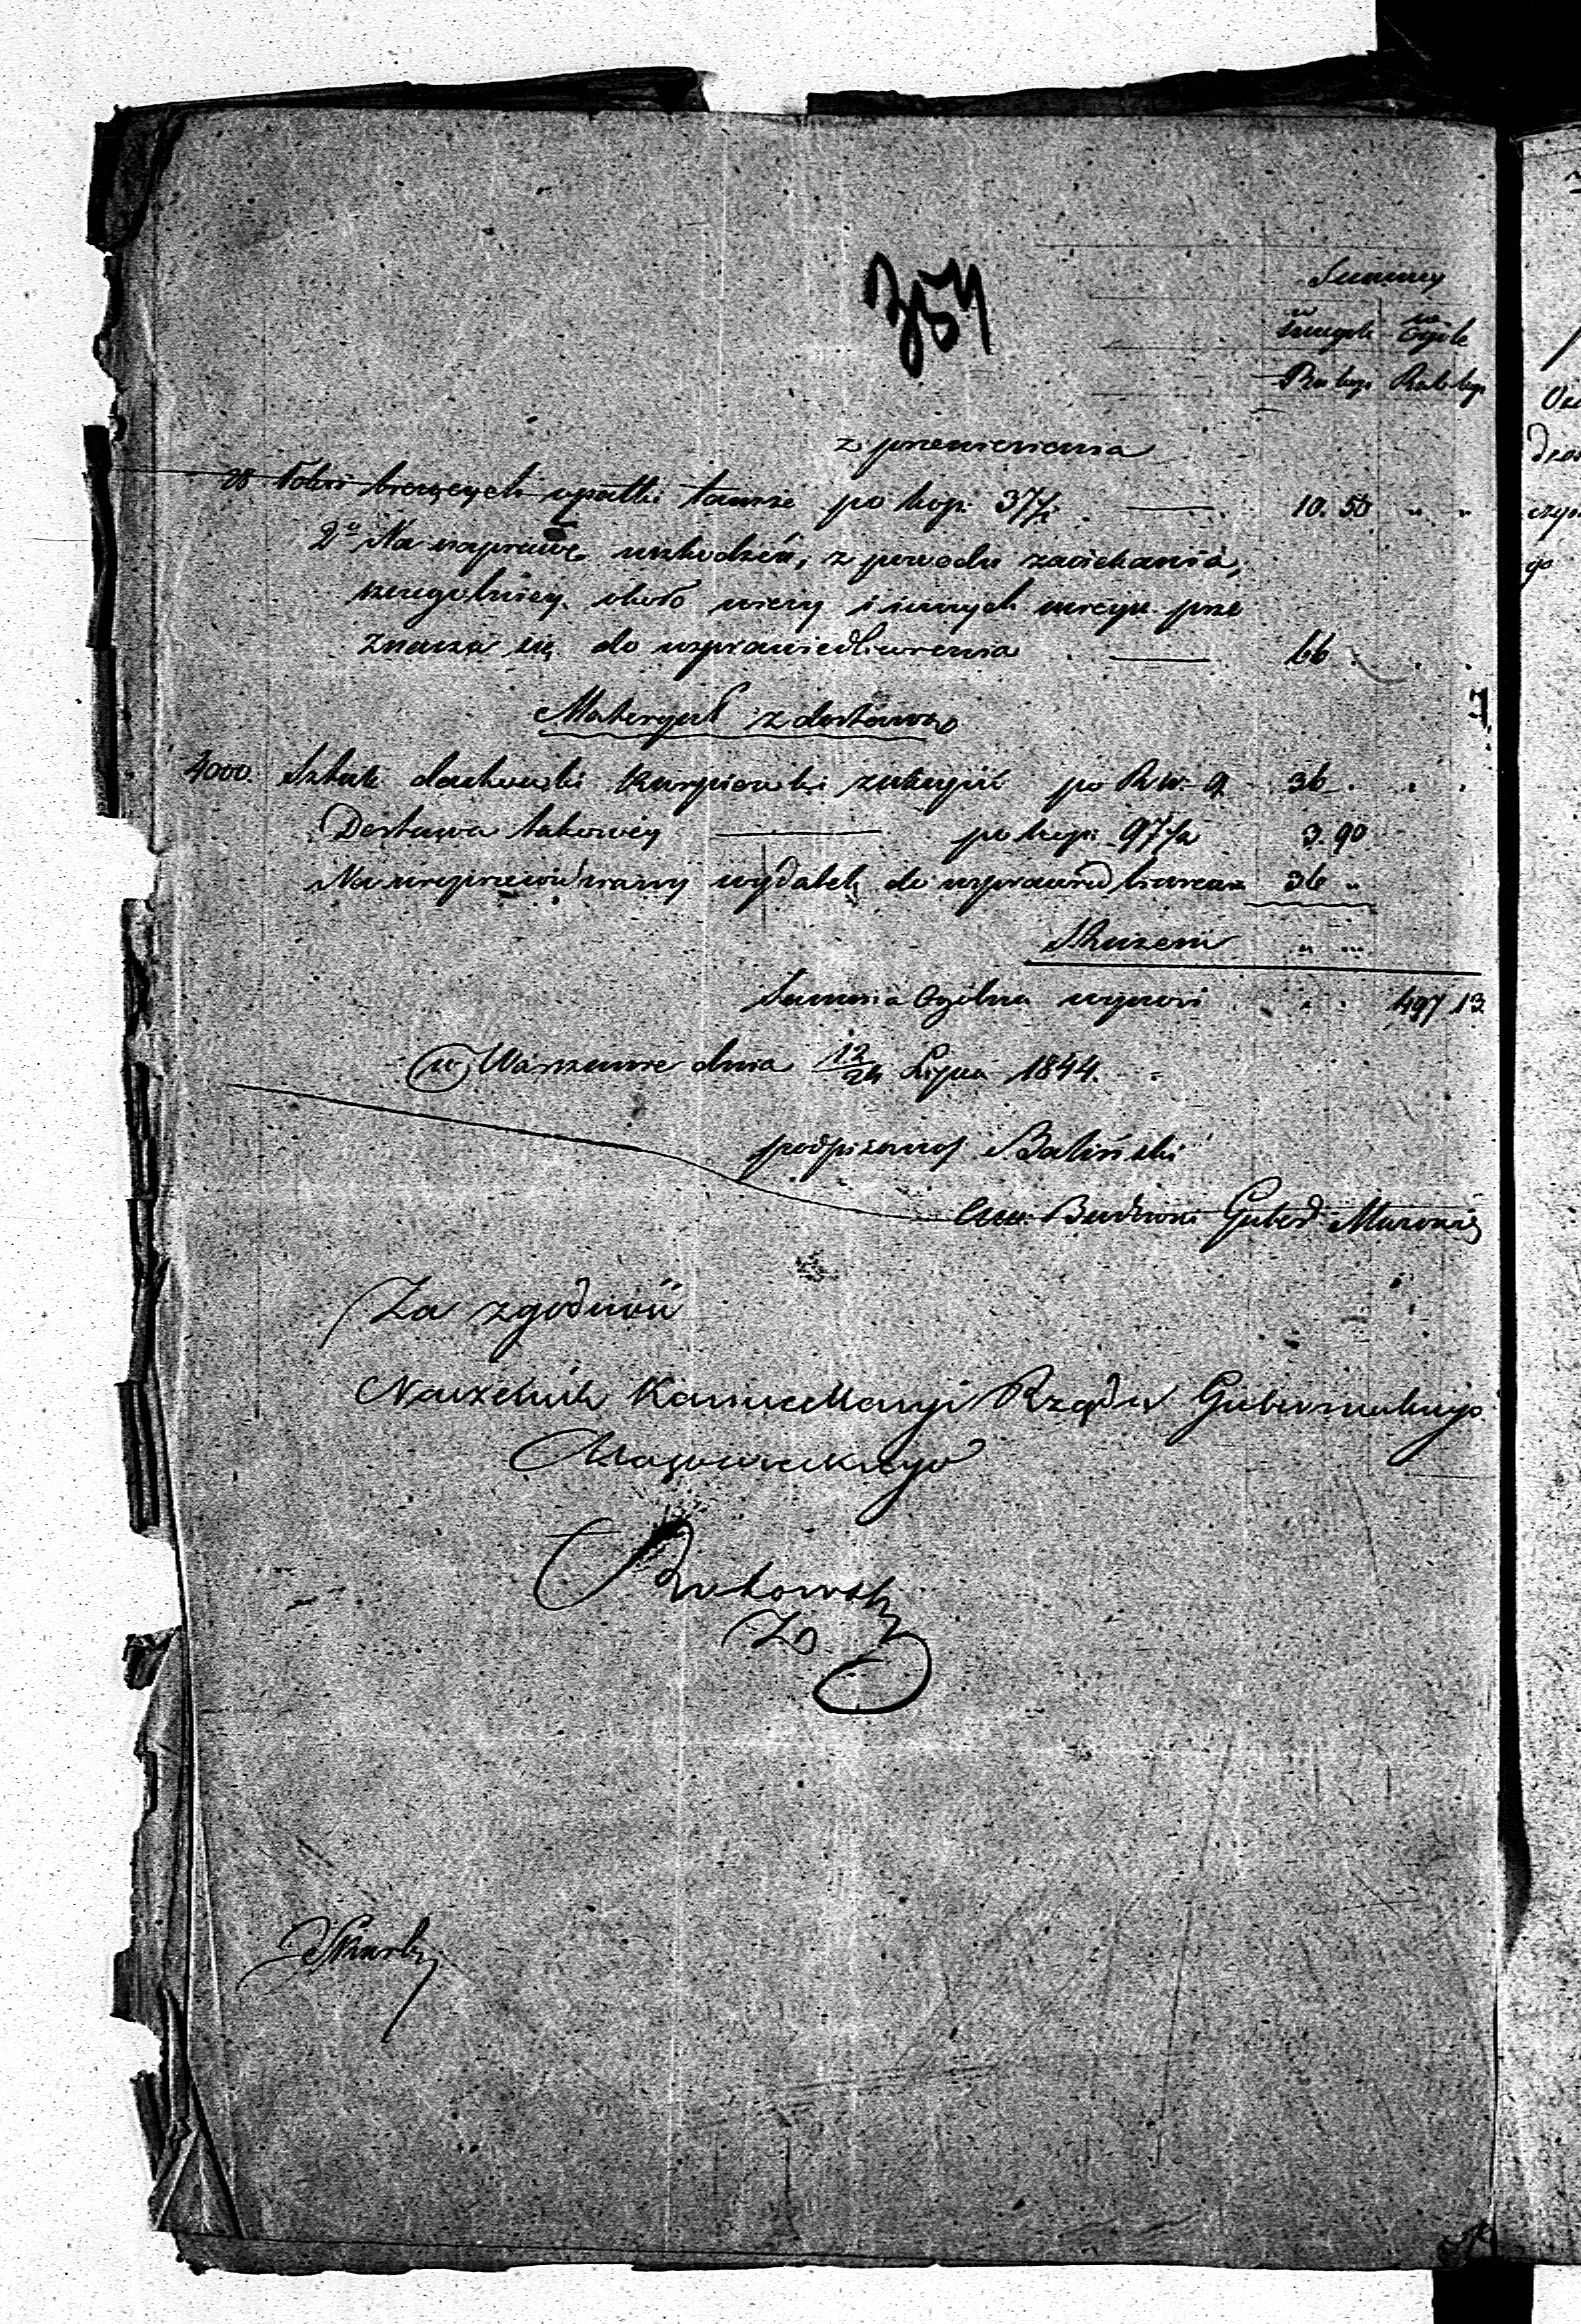 354
Summy
w szczegole w Ogóle
Rub kop Rub kop
z przeniesienia
28 łokci bieżących opałki tamże po kop. 37½ — 10. 50 " "
2° Na naprawę uszkodzeń, z powodu zaciekania,
szczególniey około wieży i innych mieysc prze
znacza się do usprawiedliwienia — 66 . . .
Materyał z dostawą
4000 Sztuk dachówki Karpiówki zakupić po R sr. 9 36 . . .
Dostawa takowéy — po kop. 97½ 3. 90
Na nieprzewidziany wydatek do usprawiedliwienia 36 "
Razem " "
Summa Ogólna wynosi . . 497 13
w Warszawie dnia 12/24 Lipca 1844.
podpisany Baliński
Bud: Gub: Mazow:
Za zgodność
Naczelnik Kancellaryi Rządu Gubernialnego
Mazowieckiego